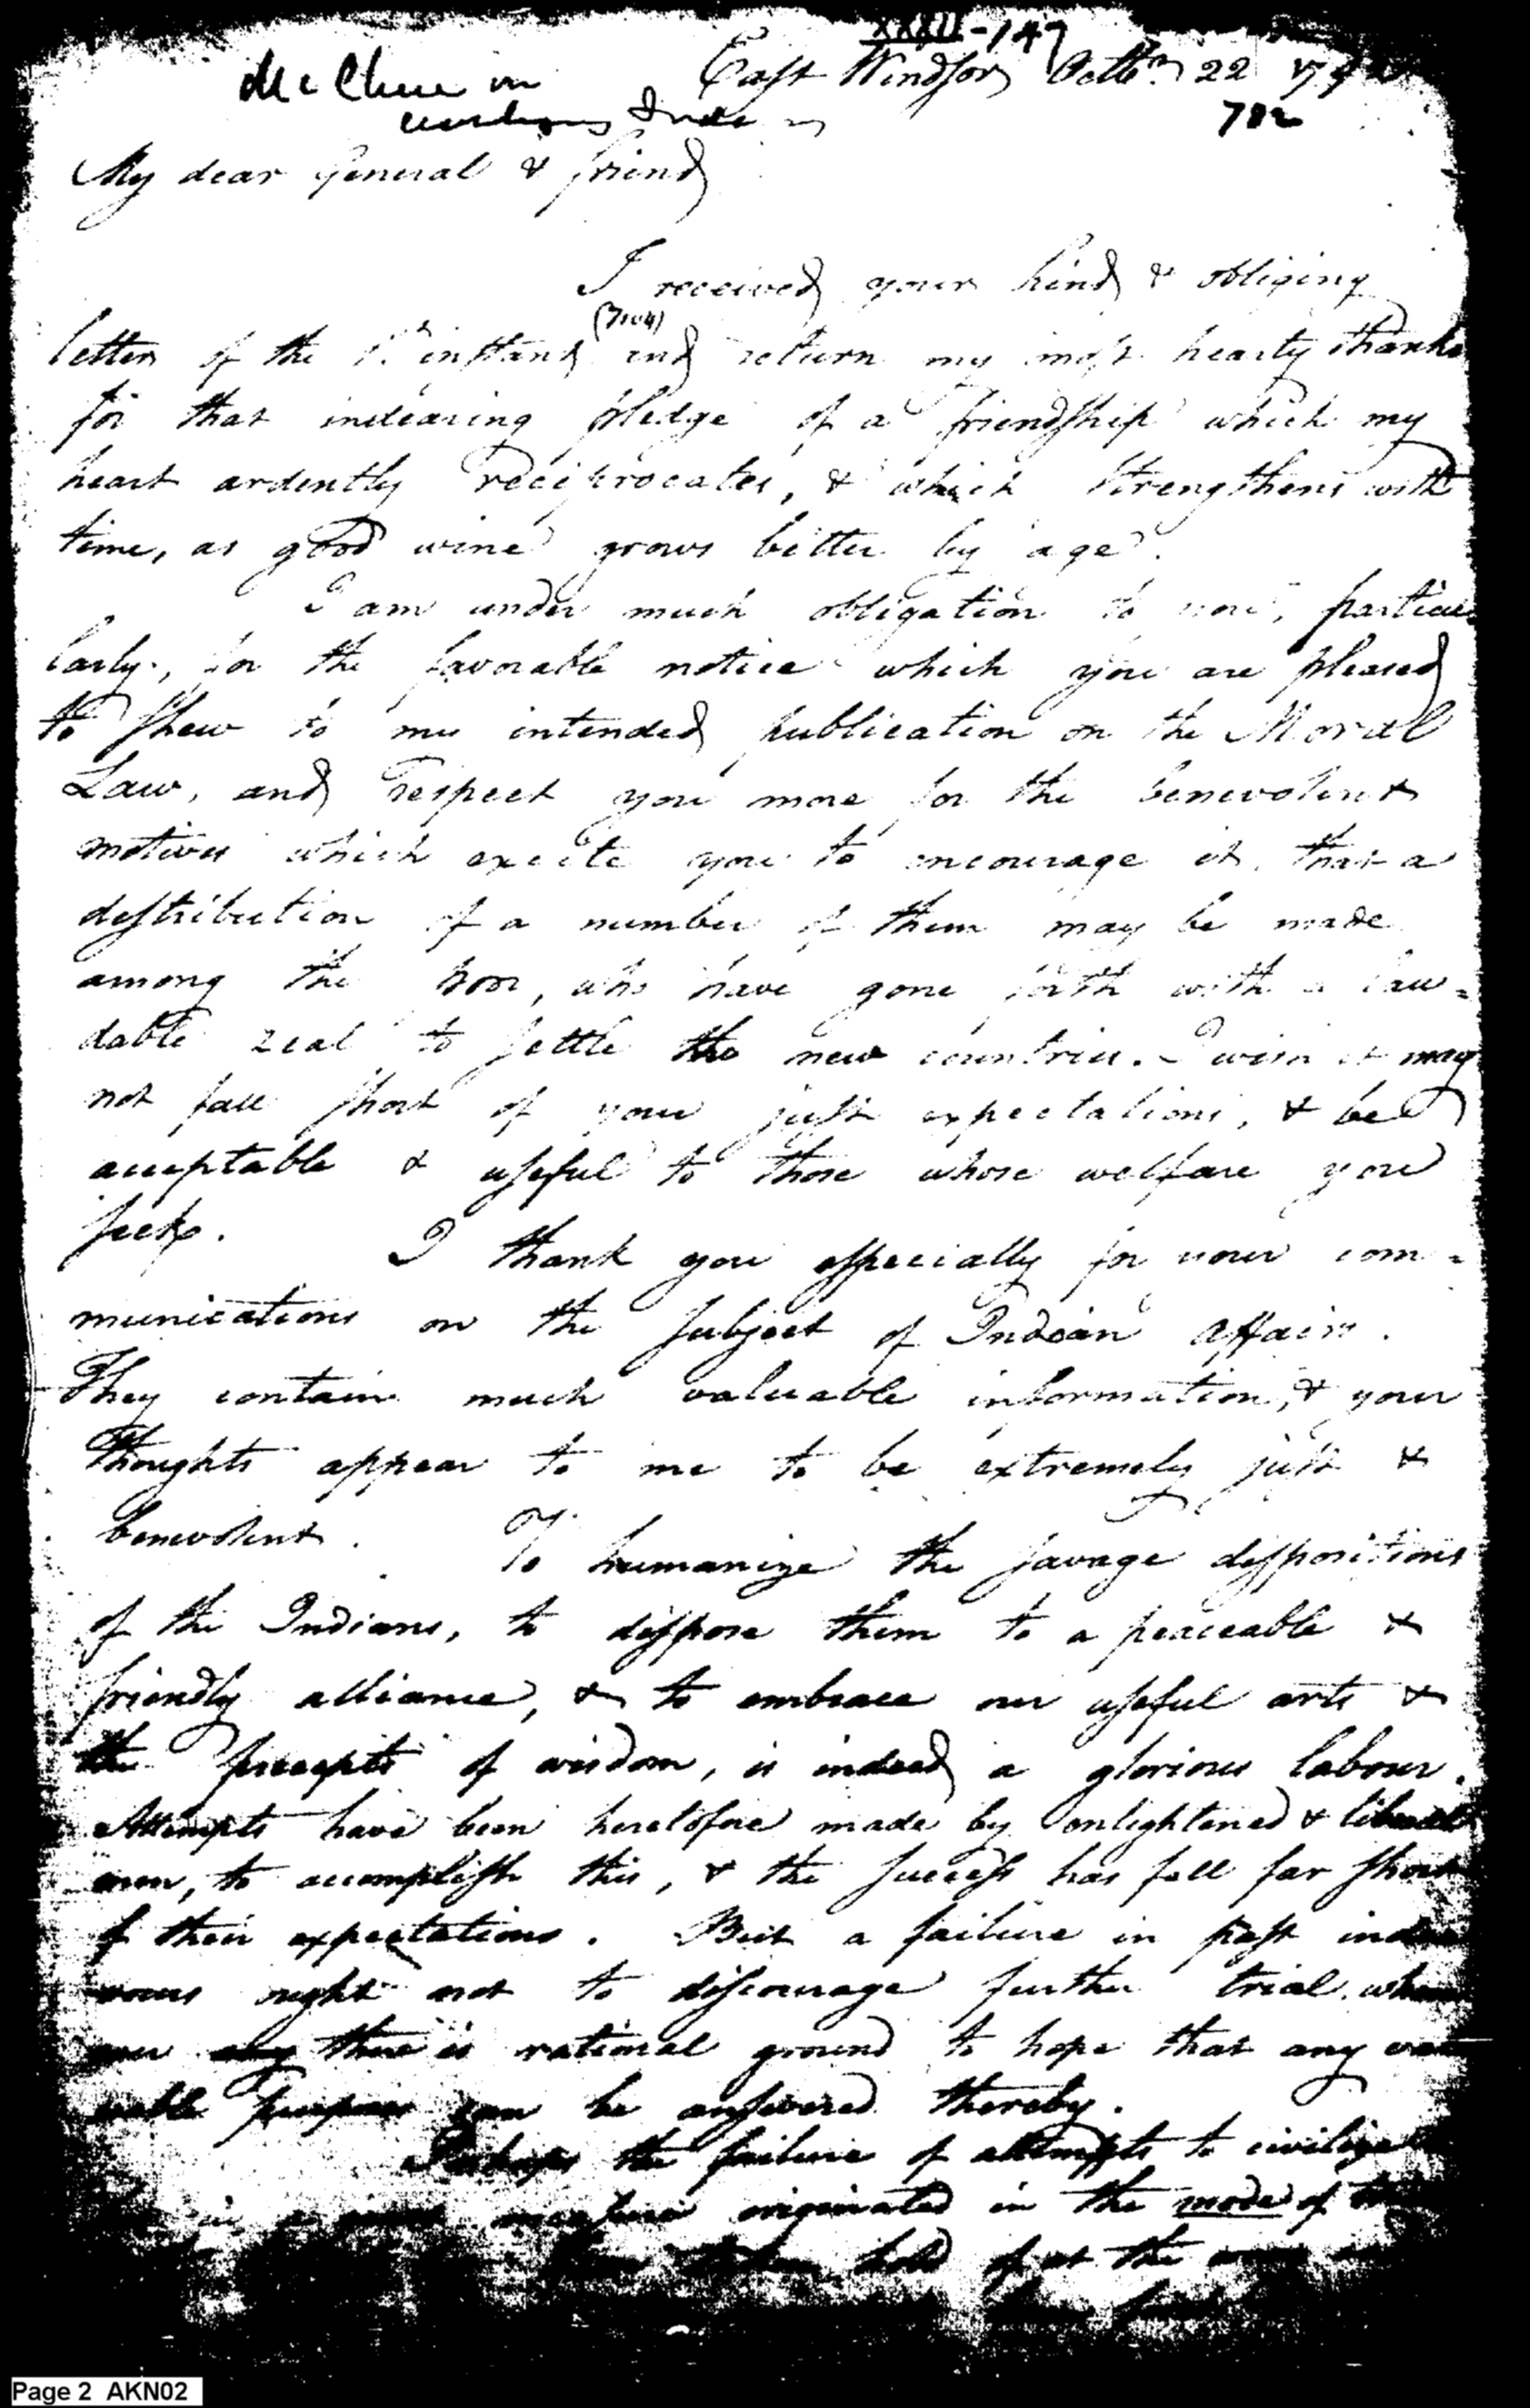 XXXII-147
East Windsor Octbr. 22 179
McClure on
Indians
702
My dear General & friend
I received your kind & obliging
(7104)
letter of the 1st instant and return my most hearty thanks
for that indearing pledge of a friendship which my
heart ardently reciprocates, & which strengthens with
time, as good wine grows better by age.
I am under much obligation to you, particu
larly, for the favorable notice which you are pleased
to shew to my intended publication on the Moral
Law, and respect you more for the benevolent
motives which excite you to encourage it, that a
destribution of a number of them may be made
among the poor, who have gone forth with a lau=
dable zeal to settle the new countries. I wish it may
not fall short of your just expectations, & be
acceptable & useful to those whose welfare you
seek.
I thank you especially for your com=
munications on the subject of Indian affairs.
They contain much valuable information, & your
Thoughts appear to me to be extremely just &
benevolent.
To humanize the savage dispositions
of the Indians, to dispose them to a peaceable &
friendly alliance, & to embrace our useful arts &
the precepts of wisdom, is indeed a glorious labour.
Attempts have been heretofore made by enlightened & liberal
men, to accomplish this, & the success has fell far short
of their expectations. But a failure in past indea
vours ought not to discourage further trial, when
ever any there is rational ground to hope that any val
uable purpose can be answered thereby.
Perhaps the failure of attempts to civilize
in originated in the mode of
hold of at the
Page 2 AKN02